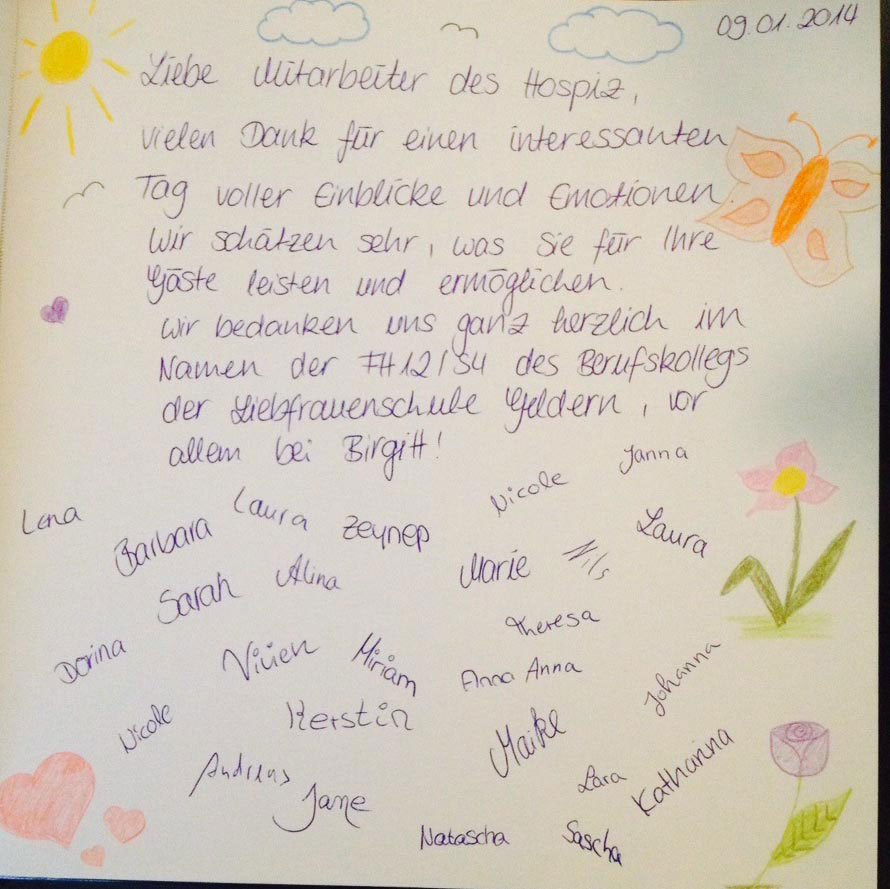 09.01.2014
Liebe Mitarbeiter des Hospiz,
vielen Dank für einen interessanten
Tag voller Einblicke und Emotionen.
Wir schätzen sehr, was Sie für Ihre
Gäste leisten und ermöglichen.
Wir bedanken uns ganz herzlich im
Namen der FH12/S4 des Berufskollegs
der Liebfrauenschule Geldern, vor
allem bei Birgitt!
Janna
Nicole
Lena
Laura
Barbara
Zeynep
Laura
Marie
Nils
Alina
Sarah
Theresa
Dorina
Vivien
Miriam
Anna Anna
Johanna
Nicole
Kerstin
Maike
Andreas
Jane
Lara
Katharina
Natascha
Sascha